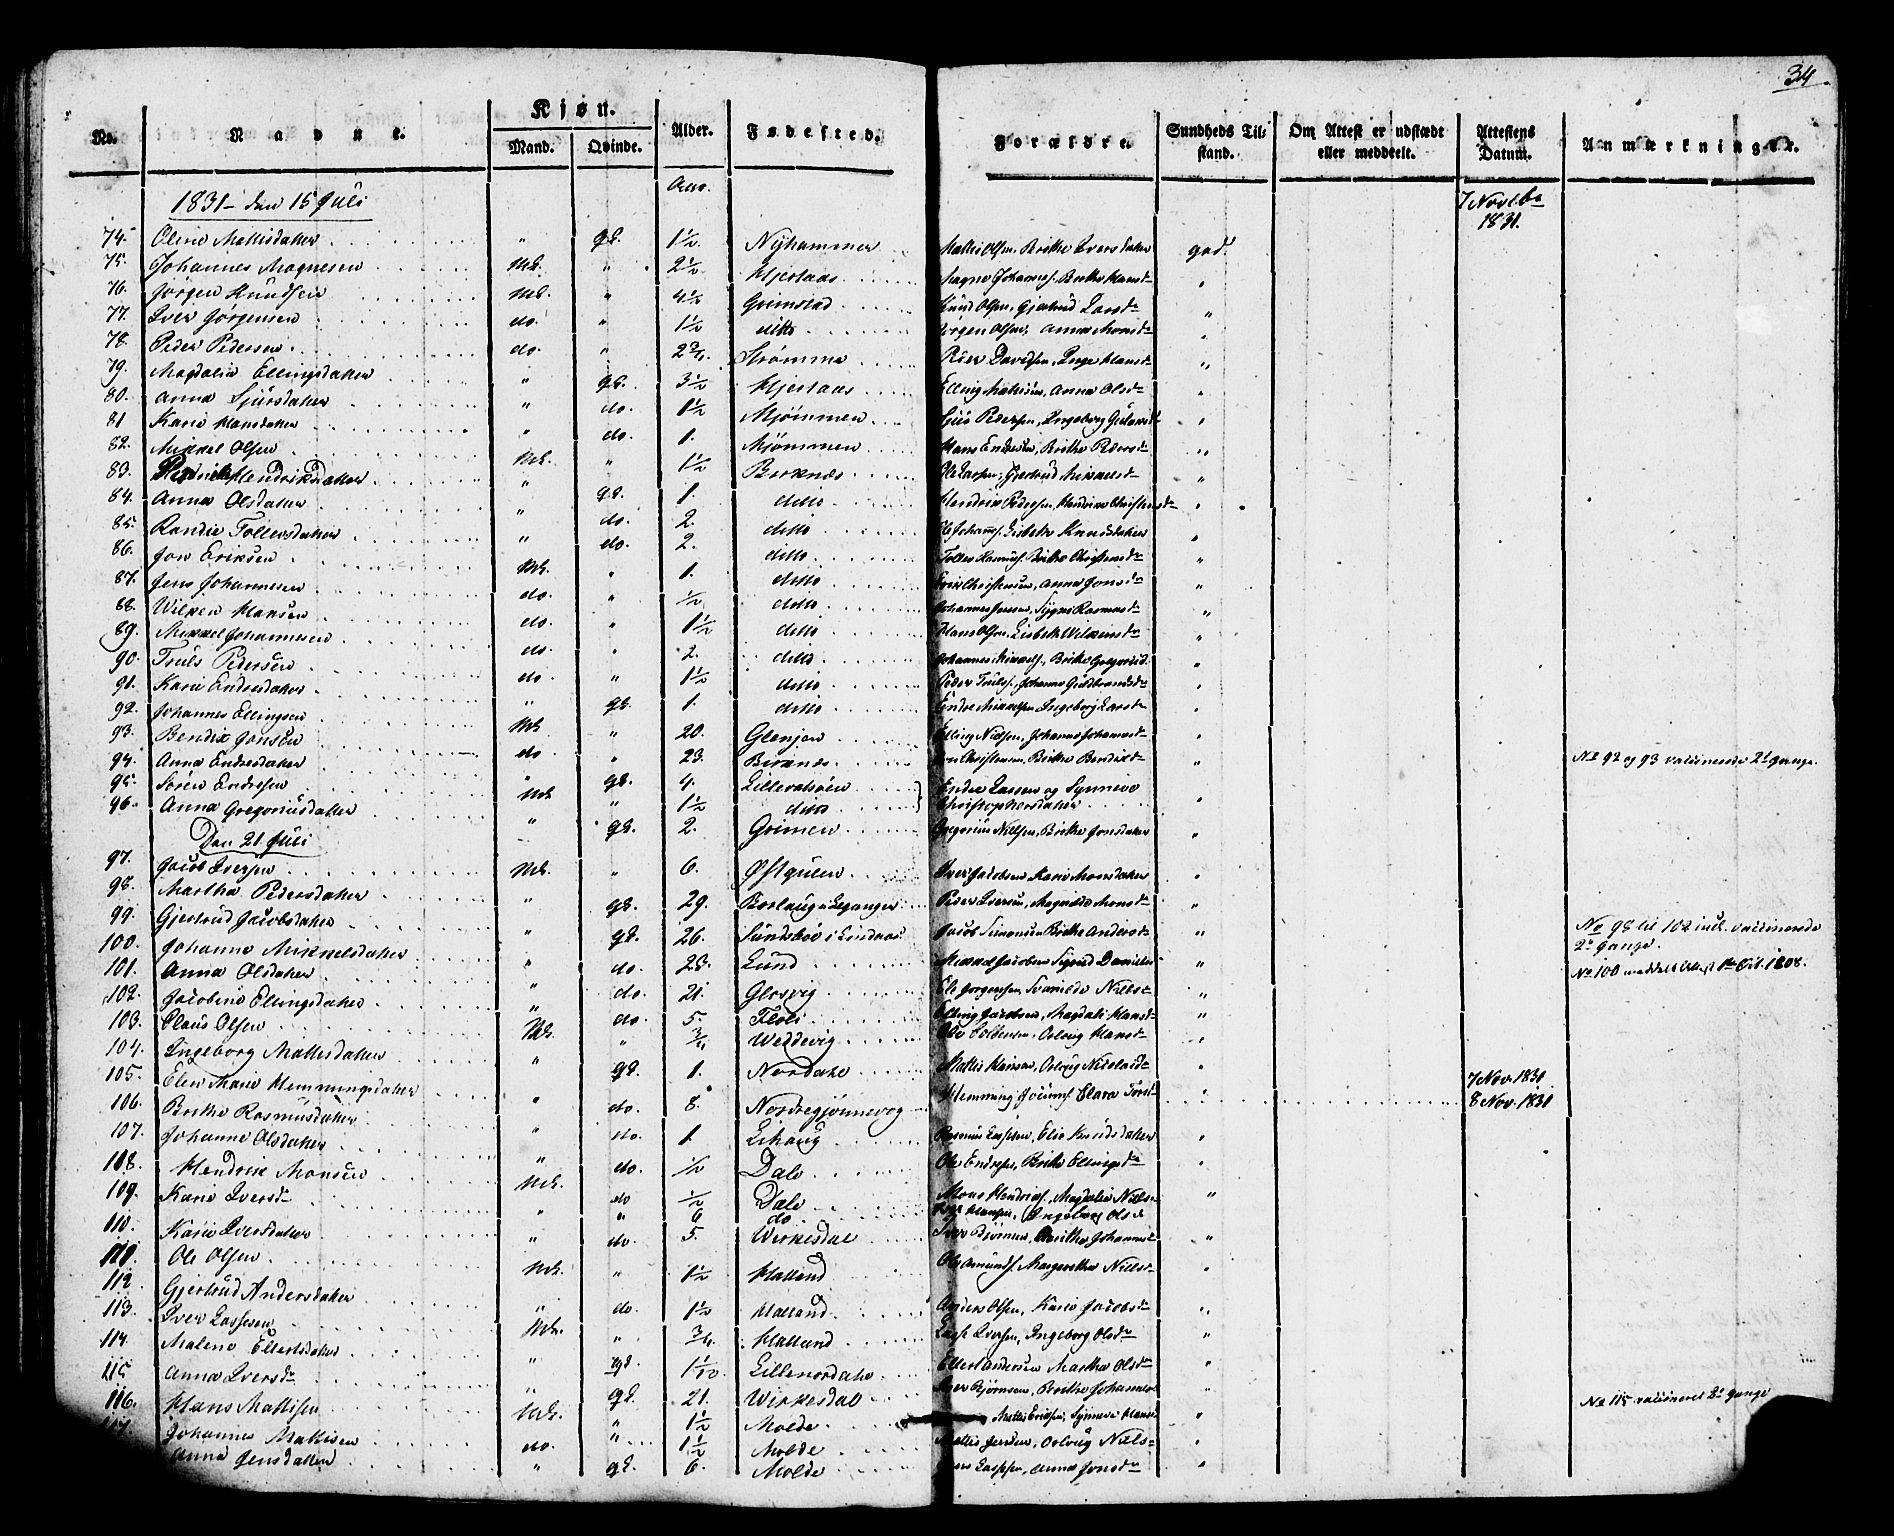 34
No. Navne. Kjøn. Mand. Qvinde. Alder. Fødested. Forældre. Sundheds Tilstand. Om Attest er udstædt eller meddeelt. Attestens Datum. Anmærkninger.
1831 - den 15 Juli Aar. 7 Novbr 1831.
74. Oline Mattisdatter " qd. 1½. Nyhammer Mattis Olsen, Brithe Iversdatter god.
75. Johannes Magnesen Md. " 2½ Hjertaas Magne Johanns. Brithe Hansd "
76. Jörgen Knudsen Md. " 4½ Grimstad Knud Olsen, Gjertrud Larsd "
77. Iver Jørgensen do. " 1½ ditto Jørgen Olsen, Anna Monsd "
78. Peder Pedersen do. " Strømme Peder Davidsen, Inge Hansd "
79. Magdalia Ellingsdatter " qd. 3½ Hjertaas Elling Mattisen, Anna Olsd "
80. Anna Sjursdatter " do. 1½ Mjømmen Sjur Pedersen, Ingeborg "
81 Kari Hansdatter " do. 1. Mjømmen Hans Endresen, Brithe Pedersd "
82. Mikkel Olsen Md. " 1½ Berknes Ole Larsen, Gjertrud Mikkelsd "
83. Hendriksdatter " qd. 1. ditto Hendrik Pedersen, Christensd "
84. Anna Olsdatter " do. 2. ditto Ole Johanns. Lisbeth Knudsdatter "
85. Randie Tollersdatter " do. 2. ditto Toller Brithe Christensd "
86. Jon Eriksen Md. " 1. ditto Erik Christensen, Anna Jonsd "
87. Jens Johannesen do. " ½ ditto Johannes Jensen, Sygni Rasmusd "
88. Wilken Hansen do. " 1½ ditto Hans Olsen, Lisbeth Wilkensd "
89. Mikkel Johannesen do. " 2. ditto Johannes Mikkels., Brithe Gregoriusd. "
90. Truls Pedersen do. " 1½ ditto Peder Truls., Johanne Guldbrandsd "
91. Kari Endresdatter " qd. 1. ditto Endre Mikkelsen Ingeborg Larsd "
92. Johannes Ellingsen Md. " 20. Glenjen Elling Nielsen, Johanne Johannesd "
93. Bendix Jonsen do " 23. Berknes Jon Christensen, Brithe Bendixd " No 92 og 93 vaccinerede 2de gange.
94. Anna Endresdatter " qd. 4. Lillevatsöien Endre Lassen og Synneve
95. Sören Endresen Md " 1½ ditto Christophersdatter "
96. Anna Gregoriusdatter " qd. 2. Grimen Gregorius Nielsen, Brithe Jonsdatter "
Den 21 Juli
97. Jacob Iversen Md. " 6. Østgulen Iver Jacobsen Kari Monsdatter "
98. Martha Pedersdatter " qd. 29. Borlaug i Leganger Peder Iversen, Magnilde Monsd "
99. Gjertrud Jacobsdatter " qd. 26. Sundsbö i Lindaas Jacob Simonsen Brithe Andersd " No 98 til 102 incl. vaccinerede 2de gange.
100. Johanna Mikkelsdatter " do. 23. Lund Mikkel Jacobsen Sigrid Danielsd " No 100 meddelt Attest 1 Oct. 1808.
101. Anna Olsdatter " do. 21. Glosvig Ole Jorgensen, Svanilde Nielsd "
102. Jacobine Ellingsdatter " do. 5. Floli Elling Jacobsen, Magdali Hansd "
103. Claus Olsen Md. " Weddevig Ole Oslaug Hansd "
104. Ingeborg Mattisdatter " qd. 1. Nordahl Mattis Hansen, Oslaug Nicolaisd " 7 Nov. 1831
105. Elen Marie Hemmingsdatter " do. 8. Nordregjønnevog Hemming Clara " 8 Nov. 1831
106. Brithe Rasmusdatter " do. 1. Lihaug Rasmus Lassen, Elie Knudsdatter "
107. Johanne Olsdatter " do. ½ Dale Ole Endresen, Brithe Ellingsd "
108. Hendrik Monsen Md. do ½ Dale Mons Hendriks., Magdalia Nielsd "
109. Kari Iversd " " 6 do Iver Hansen, Ingeborg Olsd
110. Kari Iversdatter " do. 5. Wirkesdal Iver Bjørnsen, Brithe Johannesd "
111. Ole Olsen Md. " 1½ Halland Ole Amunds. Margrethe Nielsd "
112. Gjertrud Andersdatter " do. 1½ Halland Anders Olsen, Kari Jacobsd "
113. Iver Lassesen Md. " ¾. Halland Lasse Iversen, Ingeborg Olsd "
114. Malene Ellertsdatter " qd. Lillenordahl Ellert Andersen Martha Olsd "
115 Anna Iversd " qd. 21. Wirkesdal Iver Bjørnsen, Brithe Johannesd " No 115 vaccineret 2de gange
116. Hans Mattisen Md. " 1½ Molde Mattis Eriksen, Synneve Hansd "
117. Johannes Mattisen do. " 1½ Molde Mattis Jensen, Oslaug Nielsd "
Anna Jensdatter " qd. 6. Molde Jens Lassen, Anna Jonsd "